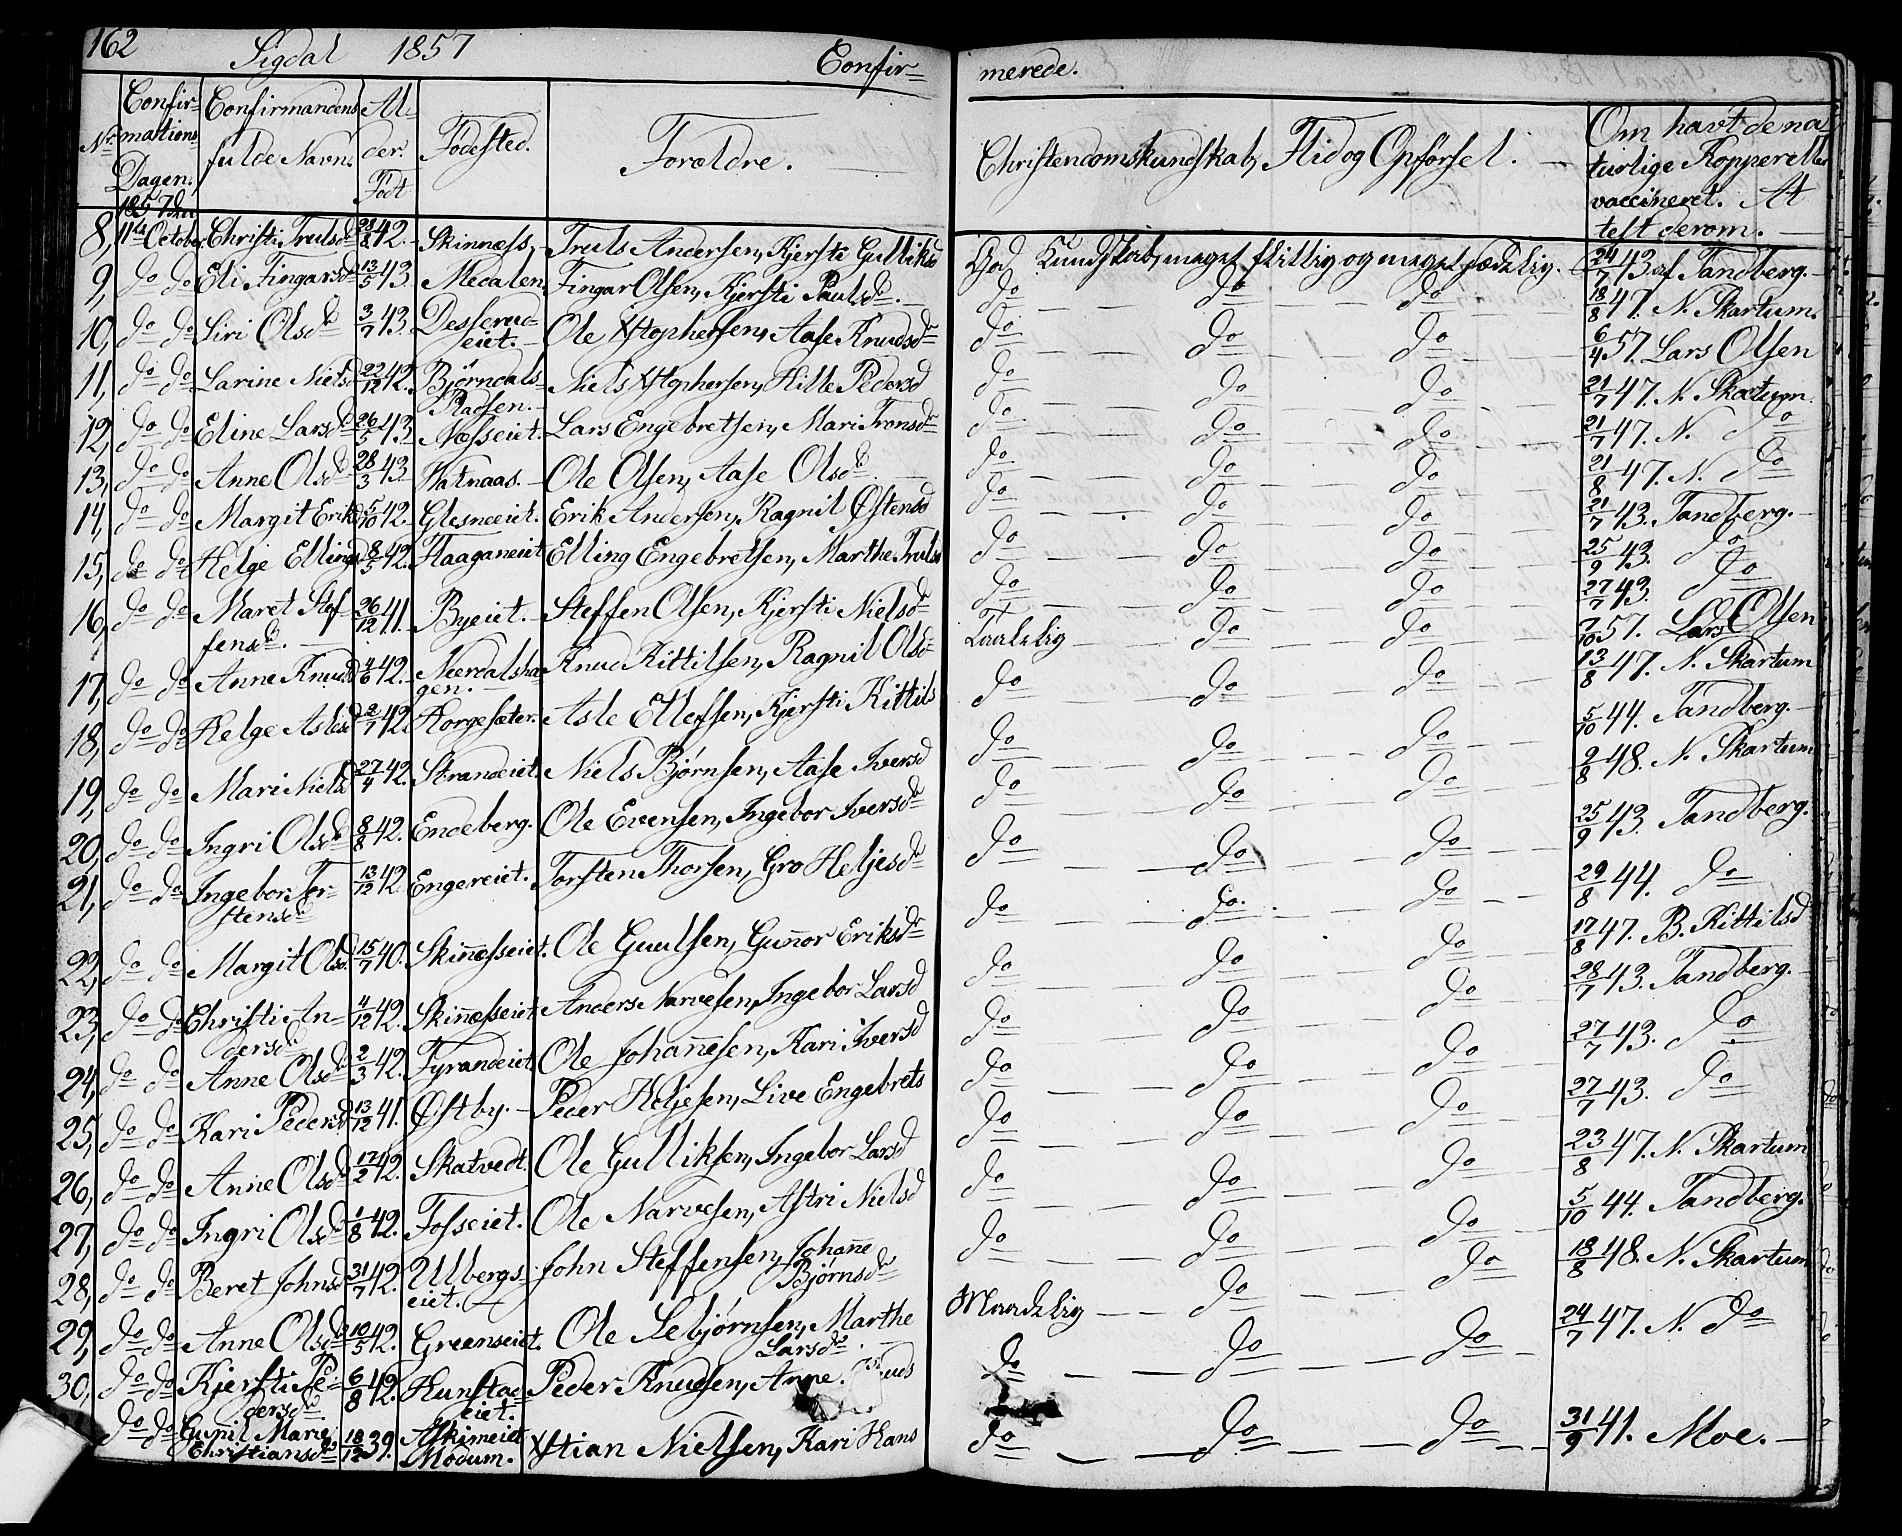 162 Sigdal 1857 Confir= merede.
No. Confirmations Dagen. Confirmandens fulde Navn. Alder. Født Fødested. Forældre. Christendomskundskab, Flid og Opførsel. Om havt de naturlige Kopper eller vaccineret. Attest derom.
1857 den
8, 11te October Christi Trulsd 28/8 42. Skinnæss, Truls Andersen, Kjersti Gulliksd God Kundskab, meget flittig og meget sædelig. 24/7 43 af Tandberg.
9, do do Eli Fingarsd 13/5 43 Medalen Fingar Olsen, Kjersti Paulsd. do do do 18/8 47. N. Skartum.
10, do do Siri Olsd 3/7 43. Desserud=eiet. Ole Xtophersen, Aase Knudsd do do do 6/4 57. Lars Olsen
11, do do Larine Nielsd 22/12 42. Bjørndals= Niels Xtophersen, Hille Pedersd do do do 21/7 47. N. Skartum.
Pladsen.
12, do do Eline Larsd 26/5 43 Næsseiet. Lars Engebretsen, Mari Tronsd do do do 21/7 47. N. do
13, do do Anne Olsd 28/3 43. Vatnaas. Ole Olsen, Aase Olsd do do do 21/8 47. N. do
14, do do Margit Eriksd 5/10 42. Glesneeiet. Erik Andersen, Ragnil Østensd do do do 21/7 43. Tandberg.
15, do do Helge Ellingsd 8/5 42. Haaganeiet Elling Engebretsen, Marthe Trulsd do do do 25/9 43. do
16, do do Maret Stef= 26/12 41. Byeiet. Steffen Olsen, Kjersti Nielsd do do do 27/7 43. do
fensd.
17, do do Anne Knudsd 4/6 42. Neerdalsha= Knud Kittilsen, Ragnil Olsd Taalelig do do 7/10 57. Lars Olsen
gen.
18, do do Helge Aslesd 2/7 42. Horgesæter. Asle Ellefsen, Kjersti Kittils do do do 13/8 47. N. Skartum
19, do do Mari Nielsd 27/4 42. Strandeiet. Niels Bjørnsen, Aase Iversd do do do 5/10 44. Tandberg.
20, do do Ingri Olsd 8/8 42. Endeberg. Ole Evensen, Ingebor Iversd do do do 2/8 48. N. Skartum
21, do do Ingebor Tor= 13/12 42 Engereiet. Torsten Thorsen, Gro Heljesd do do do 25/9 43. Tandberg.
stensd
22, do do Margit Olsd. 15/7 40. Skinnæsseiet. Ole Guulsen, Gunnor Eriksd do do. do 29/8 44. do
23, do do Christi An= 4/12 42. Skinnæsseiet Anders Narvesen, Ingebor Larsd do do do 17/8 47. B. Kittilsd
dersd
24, do do Anne Olsd 2/3 42. Fyrandeiet Ole Johannesen, Kari Iversd do do do 28/7 43. Tandberg.
25, do do Kari Pedersd 13/12 41. Østby. Peder Heljesen, Live Engebrets do do do 27/7 43. do
26, do do Anne Olsd 17/2 42. Skatvedt. Ole Gulliksen, Ingebor Larsd do do do 27/7 43. do
27, do do Ingri Olsd 1/8 42. Fosseiet. Ole Narvesen, Astri Nielsd do do do 23/8 47. N. Skartum
28, do do Beret Johnsd 31/7 42. Ulbergs= John Steffensen, Johanne do do do 5/10 44. Tandberg.
eiet. Bjørnsd
29, do do Anne Olsd 10/5 42. Greenseiet. Ole Sebjørnsen, Marthe Maadelig do do 18/8 48. N. Skartum
Larsd
30, do do Kjersti Pe= 6/8 42. Hunstad= Peder Knudsen, Anne do do do 24/7 47. N. do
dersd. eiet.
do do Gunil Marie 18/12 39. Askimeiet Xstian Nielsen, Kari Hans do do do 31/9 41. Moe.
Christiansd Modum.